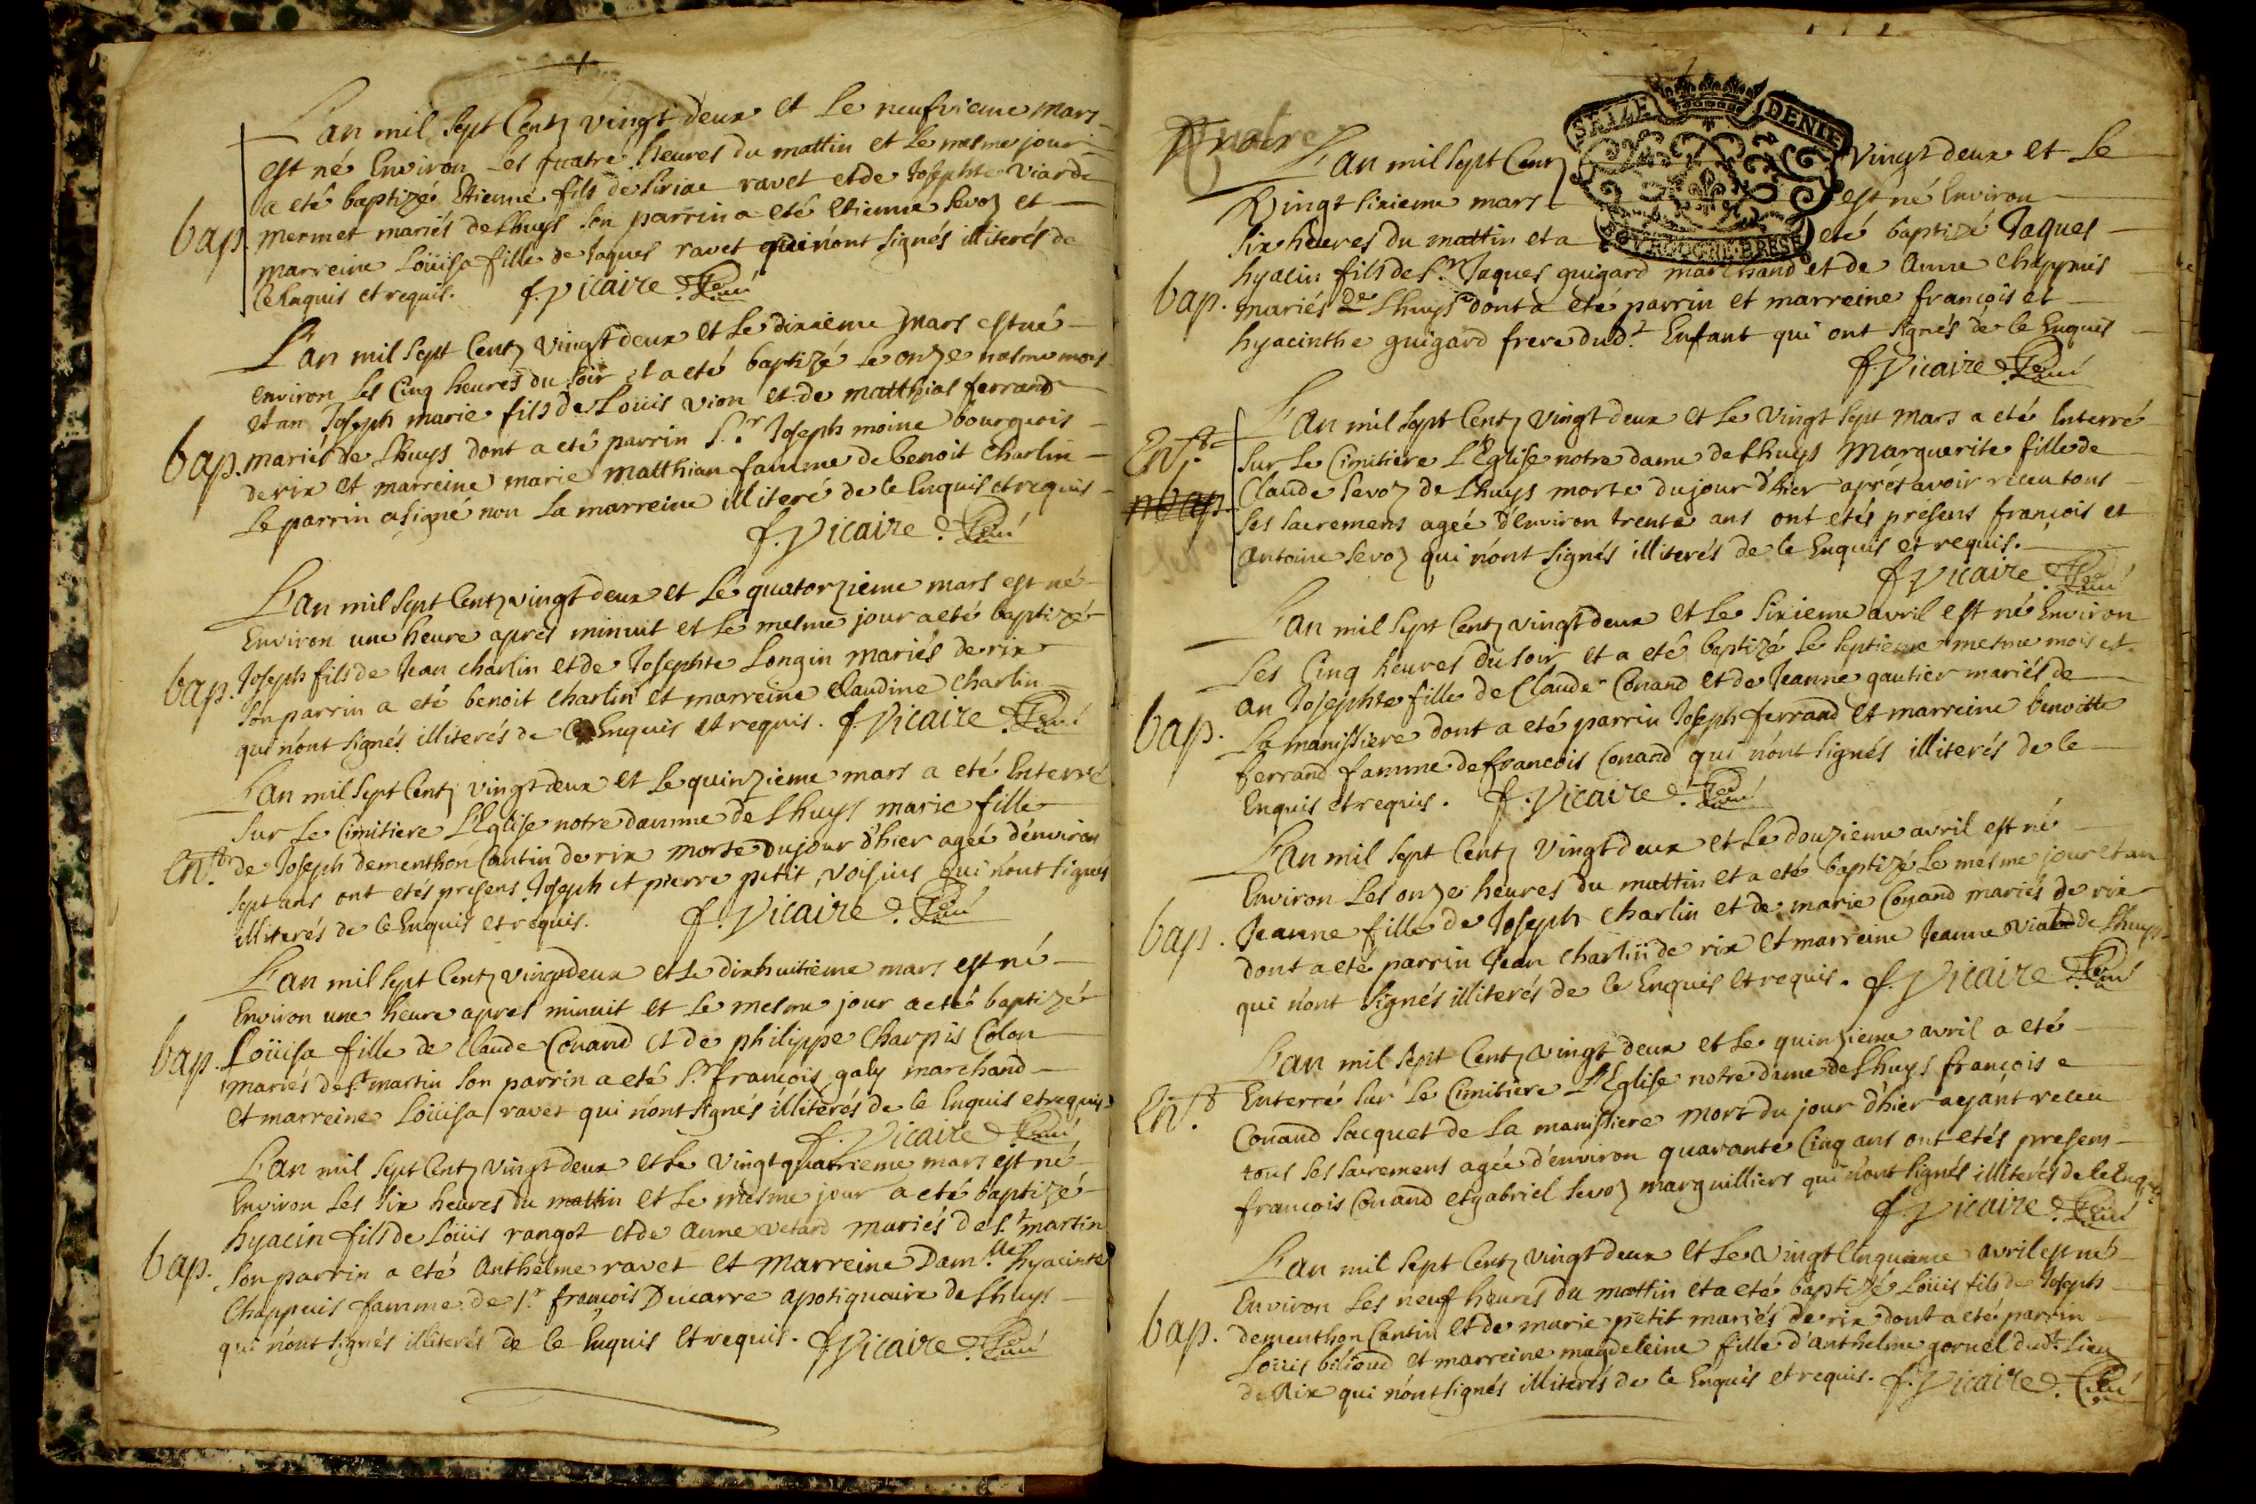 L'an mil sept Cent vingt deux et le neufvieme mars
est né Environ les quatre heures du mattin et le mesme jour
a eté baptizé Etienne fils de Siriac ravet et de Josephte viarde
bap. mermet mariés de Lhuys son parrin a eté Etienne Sevoz et
marreine Loüisa fille de Jaques ravet qui n'ont signés illiterés de
Ce Enquis et requis. f. Vicaire
L'an mil sept Cent vingt deux et le dixieme mars est né
environ les Cinq heures du soir et a eté baptizé le onze mesme mois
et an Joseph marie fils de Loüis vion et de matthias ferrand
bap. mariés de Lhuys dont a eté parrin S.r Joseph moine bourgeois
de rix et marreine marie matthian famme de benoit Charlin
le parrin a signé non la marreine illiteré de Ce Enquis et requis
f. Vicaire
L'an mil sept Cent vingt deux et le quatorzieme mars est né
Environ une heure apres minuit et le mesme jour a eté baptizé
bap. Joseph fils de Jean charlin et de Josephte Longin mariés de rix
son parrin a eté benoit charlin et marreine claudine charlin
qui n'ont signés illiterés de Ce Enquis et requis. f. Vicaire
L'an mil sept Cent vingt deux et le quinzieme mars a eté Enterré
sur le Cimitiere L'Eglise notre damme de Lhuys marie fille
Ent. de Joseph dementhon Cantin de rix morte du jour d'hier ageé d'environ
sept ans ont etés presens Joseph et pierre petit voisins qui n'ont signés
illiterés de Ce Enquis et requis. f. Vicaire
L'an mil sept Cent vingt deux et le dixhuitieme mars est né
Environ une heure apres minuit et le mesme jour a eté baptizé
bap. Loüisa fille de Claude Conand et de philippe Charpis Colon
mariés de S.t martin son parrin a eté S.r françois galy marchand
et marreine Loüisa ravet qui n'ont signés illiterés de Ce Enquis et requis
f. Vicaire
L'an mil sept Cent vingt deux et le vingt quatrieme mars est né
Environ les six heures du mattin et le mesme jour a eté baptizé
hyacin fils de Loüis rangot et de Anne vetard mariés de S.t martin
bap. son parrin a eté Anthelme ravet et Marreine Dam.lle hyacinte
Chappuis famme de S.r françois Ducarre apotiquaire de Lhuys
qui n'ont signés illiterés de Ce Enquis et requis. f. Vicaire
quatre
SEIZE DENIE
L'an mil sept Cent vingt deux et le
Vingt sixieme mars est né Environ
six heures du mattin et a eté baptizé Jaques
BOURGOGNE BRESSE
hyacin fils de S.r Jaques guigard marchand et de Anne Chappuis
bap. mariés de Lhuys dont a eté parrin et marreine françois et
hyacinthe guigard frere dud.t Enfant qui ont signés de Ce Enquis
f. Vicaire
L'an mil sept Cent vingt deux et le vingt sept mars a eté Enterré
Ent. sur le Cimitiere L'Eglise notre dame de Lhuys Marguerite fille de
bap. Claude Sevoz de Lhuys morte du jour d'hier aprés avoir receu tous
ses sacremens ageé d'Environ trente ans ont etés presens françois et
Antoine Sevoz qui n'ont signés illiterés de Ce Enquis et requis.
f. Vicaire
L'an mil sept Cent vingt deux et le sixieme avril est né Environ
les Cinq heures du soir et a eté baptizé le septieme mesme mois et
an Josephte fille de Claude Conand et de Jeanne gautier mariés de
bap. La manissiere dont a eté parrin Joseph ferrand et marreine benoitte
ferrand famme de françois Conand qui n'ont signés illiterés de Ce
Enquis et requis. f. Vicaire
L'an mil sept Cent vingt deux et le douzieme avril est né
Environ les onze heures du mattin et a eté baptizé le mesme jour et an
bap. Jeanne fille de Joseph Charlin et de marie Conand mariés de rix
dont a eté parrin Jean Charlin de rix et marreine Jeanne de Lhuys
qui n'ont signés illiterés de Ce Enquis et requis. f. Vicaire
L'an mil sept Cent vingt deux et le quinzieme avril a eté
Ent. Enterré sur le Cimitiere L'Eglise notre dame de Lhuys françois e
Conand sacquet de La manissiere mort du jour d'hier ayant receu
tous ses sacremens ageé d'environ quarante Cinq ans ont etés presens
françois Conand et gabriel Sevoz marguilliers qui n'ont signés illiterés de Ce Enquis
f. Vicaire
L'an mil sept Cent vingt deux et le vingt Cinquieme avril est né
Environ les neuf heures du mattin et a eté baptizé Loüis fils de Joseph
bap. dementhon Cantin et de marie petit mariés de rix dont a eté parrin
Loüis bilioud et marreine magdeleine fille d'anthelme gornel dud.t Lieu
de Rix qui n'ont signés illiterés de Ce Enquis et requis. f. Vicaire